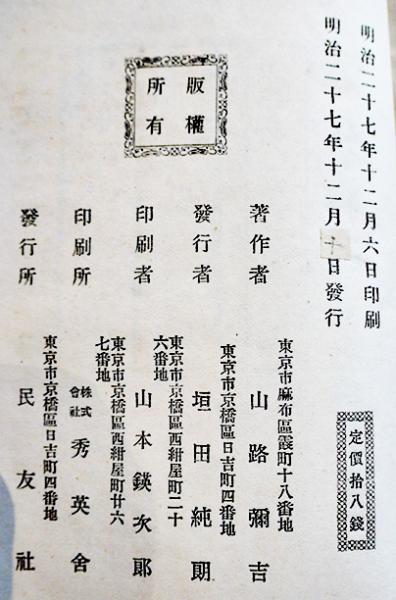 明治二十七年十二月六日印刷
明治二十七年十二月十日發行
定價拾八錢
版權所有
著作者
東京市麻布區霞町十八番地
山路彌吉
發行者
東京市京橋區日吉町四番地
垣田純朗
印刷者
東京市京橋區西紺屋町二十六番地
山本鍈次郎
印刷所
東京市京橋區西紺屋町廿六七番地
株式會社秀英舍
發行所
東京市京橋區日吉町四番地
民友社